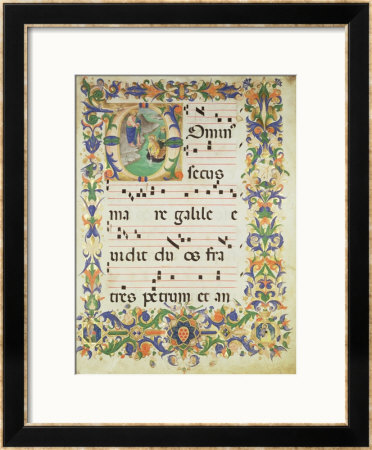 Dominꝰ
secus
ma re galilee e
uidit du os fra
tres petrum et an